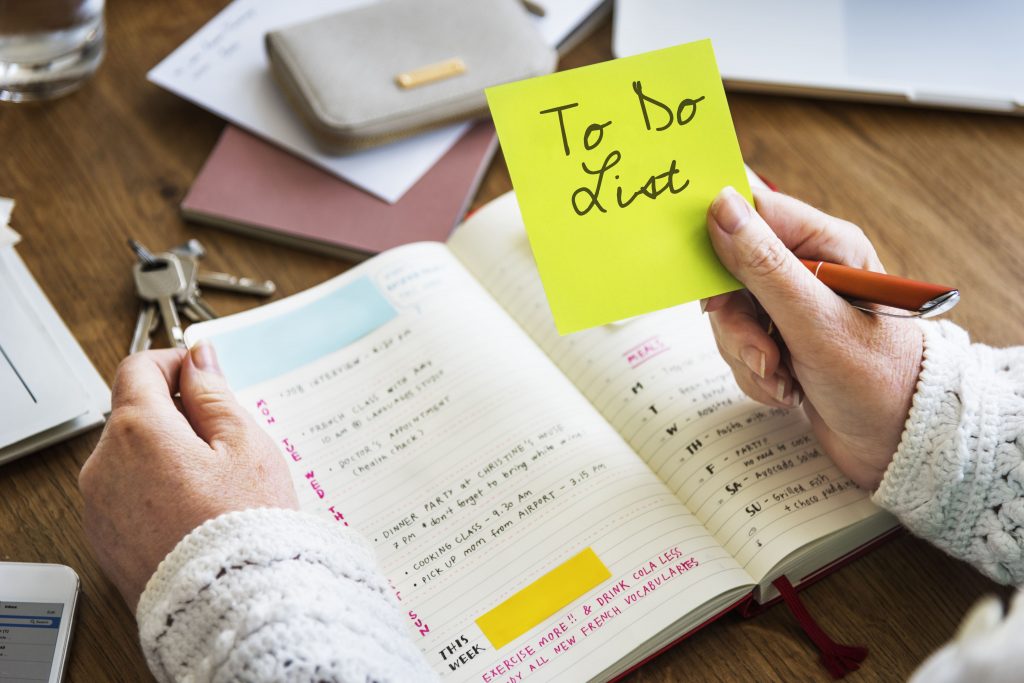 To Do
List
• JOB INTERVIEW - 4:20 PM
FRENCH CLASS with Amy
10 am @ LANGUAGES STUDIO
• DOCTOR'S APPOINTMENT
(health check)
• DINNER PARTY at CHRISTINE'S HOUSE
7 PM * don't forget to bring white wine
• COOKING CLASS - 9.30 AM
• PICK UP mom from AIRPORT - 3.15 PM
MON
TUE
WED
TH
SUN
THIS
WEEK
EXERCISE MORE!! & DRINK COLA LESS
ALL NEW FRENCH VOCABULARIES
MEALS
M
T
W - Roasted
TH - Pasta with
F - PARTY!
no need to cook
SA - Avocado Salad
SU - Grilled Fish
+ choco pudding
Inbox
Edit
Search